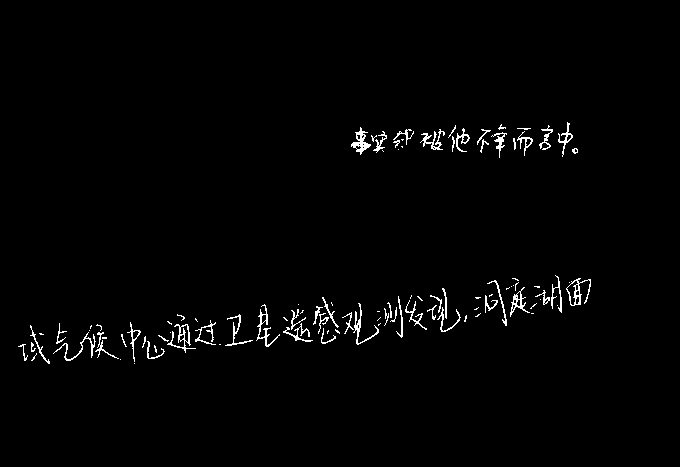 事实却被他不幸而言中。
域气候中心通过卫星遥感观测发现,洞庭湖面